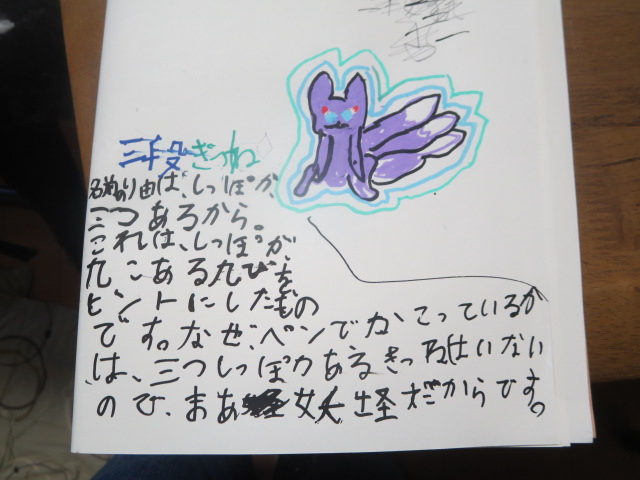 三段ぎつね
名前のり由は、しっぽが、
三つあるから。
これは、しっぽが、
九こある九びを
ヒントにしたもの
です。なぜ、ペンでかこっているか
は、三つしっぽがあるきつねはいない
ので、まあ妖怪だからです。